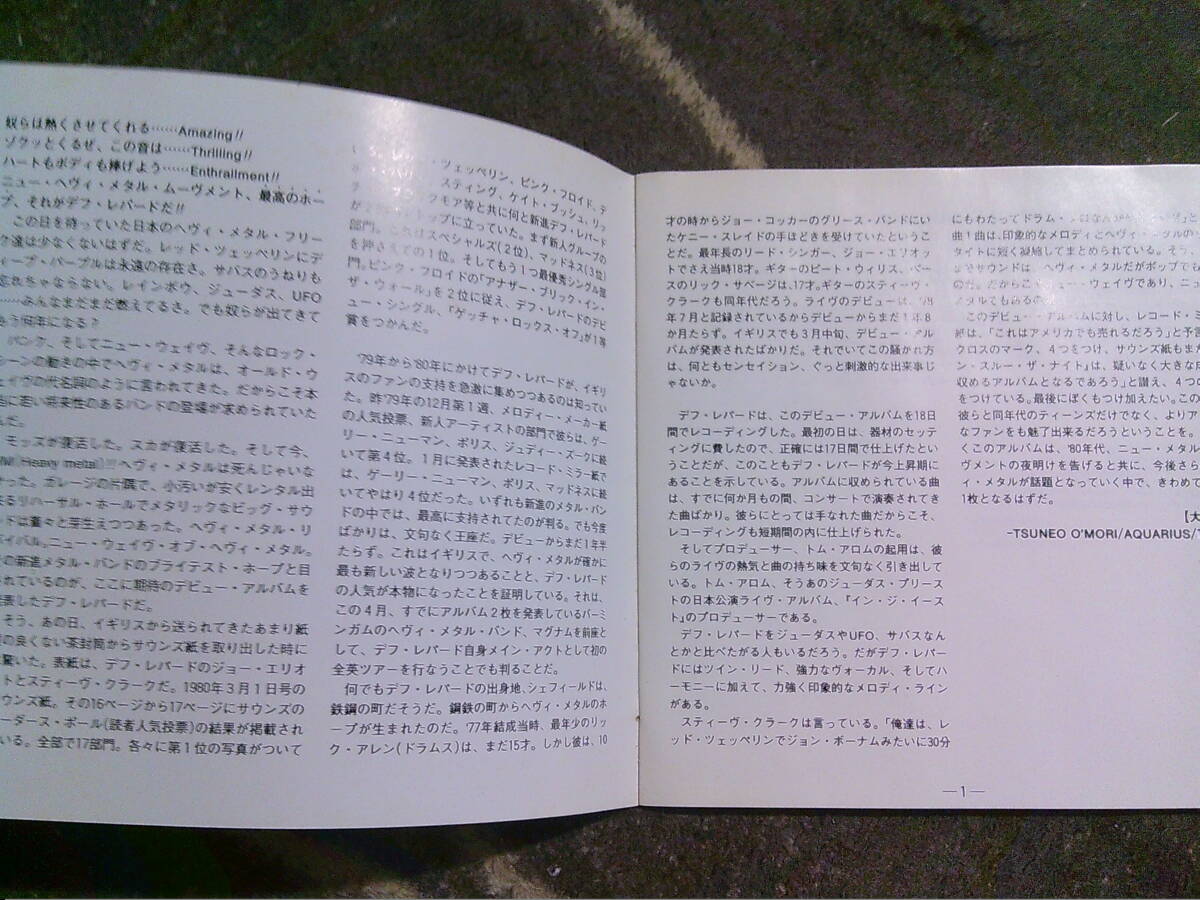 奴らは熱くさせてくれる……Amazing!!
ゾクッとくるぜ、この音は……Thrilling!!
ハートもボディも捧げよう……Enthrallment!!
ニュー・ヘヴィ・メタル・ムーヴメント、最高のホー
プ、それがデフ・レパードだ!!
この日を待っていた日本のヘヴィ・メタル・フリー
ク達は少なくないはずだ。レッド・ツェッペリンにデ
ィープ・パープルは永遠の存在さ。サバスのうねりも
忘れちゃならない。レインボウ、ジューダス、UFO
……みんなまだまだ燃えてるさ。でも奴らが出てきて
もう何年になる?
パンク、そしてニュー・ウェイヴ、そんなロック・
シーンの動きの中でヘヴィ・メタルは、オールド・ウ
ェイヴの代名詞のように言われてきた。だからこそ本
当に若い将来性のあるバンドの登場が求められていた
んだ。
モッズが復活した。スカが復活した。そして今、
HM(Heavy metal)!!ヘヴィ・メタルは死んじゃいな
かった。ガレージの片隅で、小汚いが安くレンタル出
来るリハーサル・ホールでメタリックなビッグ・サウ
ンドは着々と芽生えつつあった。ヘヴィ・メタル・リ
バイバル。ニュー・ウェイヴ・オブ・ヘヴィ・メタル。
の新進メタル・バンドのブライテスト・ホープと目
されているのが、ここに期待のデビュー・アルバムを
発表したデフ・レパードだ。
そう、あの日、イギリスから送られてきたあまり紙
質の良くない茶封筒からサウンズ紙を取り出した時に
驚いた。表紙は、デフ・レパードのジョー・エリオ
ットとスティーヴ・クラークだ。1980年3月1日号の
サウンズ紙。その16ページから17ページにサウンズの
リーダース・ポール(読者人気投票)の結果が掲載され
ている。全部で17部門。各々に第1位の写真がついて
ツェッペリン、ピンク・フロイド、デ
スティング、ケイト・ブッシュ、リッ
クモア等と共に何と新進デフ・レパード
トップに立っていた。まず新人グループの
部門。これはスペシャルズ(2位)、マッドネス(3位)
を押さえての1位。そしてもう1つ最優秀シングル部
門。ピンク・フロイドの「アナザー・ブリック・イン・
ザ・ウォール」を2位に従え、デフ・レパードのデビ
ュー・シングル、「ゲッチャ・ロックス・オフ」が1等
賞をつかんだ。
'79年から'80年にかけてデフ・レパードが、イギリ
スのファンの支持を急激に集めつつあるのは知ってい
た。昨'79年の12月第1週、メロディー・メーカー紙
の人気投票、新人アーティストの部門で彼らは、ゲー
リー・ニューマン、ポリス、ジュディー・ズークに続
いて第4位。1月に発表されたレコード・ミラー紙で
は、ゲーリー・ニューマン、ポリス、マッドネスに続
いてやはり4位だった。いずれも新進のメタル・バン
ドの中では、最高に支持されてたのが判る。でも今度
ばかりは、文句なく王座だ。デビューからまだ1年半
たらず。これはイギリスで、ヘヴィ・メタルが確かに
最も新しい波となりつつあることと、デフ・レパード
の人気が本物になったことを証明している。それは、
この4月、すでにアルバム2枚を発表しているバーミ
ンガムのヘヴィ・メタル・バンド、マグナムを前座と
して、デフ・レパード自身メイン・アクトとして初の
全英ツアーを行なうことでも判ることだ。
何でもデフ・レパードの出身地、シェフィールドは、
鉄鋼の町だそうだ。鋼鉄の町からヘヴィ・メタルのホ
ープが生まれたのだ。'77年結成当時、最年少のリッ
ク・アレン(ドラムス)は、まだ15才。しかし彼は、10
才の時からジョー・コッカーのグリース・バンドにい
たケニー・スレイドの手ほどきを受けていたというこ
とだ。最年長のリード・シンガー、ジョー・エリオッ
トでさえ当時18才。ギターのピート・ウィリス、ベー
スのリック・サベージは、17才。ギターのスティーヴ・
クラークも同年代だろう。ライヴのデビューは、'78
年7月と記録されているからデビューからまだ1年8
か月たらず。イギリスでも3月中旬、デビュー・アル
バムが発表されたばかりだ。それでいてこの騒がれ方
は、何ともセンセイション、ぐっと刺激的な出来事じ
ゃないか。
デフ・レパードは、このデビュー・アルバムを18日
間でレコーディングした。最初の日は、器材のセッテ
ィングに費したので、正確には17日間で仕上げたとい
うことだが、このこともデフ・レパードが今上昇期に
あることを示している。アルバムに収められている曲
は、すでに何か月もの間、コンサートで演奏されてき
た曲ばかり。彼らにとっては手なれた曲だからこそ、
レコーディングも短期間の内に仕上げられた。
そしてプロデューサー、トム・アロムの起用は、彼
らのライヴの熱気と曲の持ち味を文句なく引き出して
いる。トム・アロム、そうあのジューダス・プリース
トの日本公演ライヴ・アルバム、『イン・ジ・イース
ト』のプロデューサーである。
デフ・レパードをジューダスやUFO、サバスなん
とかと比べたがる人もいるだろう。だがデフ・レパー
ドにはツイン・リード、強力なヴォーカル、そしてハ
ーモニーに加えて、力強く印象的なメロディ・ライン
がある。
スティーヴ・クラークは言っている。「俺達は、レ
ッド・ツェッペリンでジョン・ボーナムみたいに30分
にもわたってドラム・
曲1曲は、印象的なメロディとヘヴィ・
タイトに短く凝縮してまとめられている。そう、
なサウンドは、ヘヴィ・メタルだがポップでも
のだ。だからこそニュー・ウェイヴであり、ニュ
メタルでもあるの
このデビュー・アルバムに対し、レコード・ミ
紙は、「これはアメリカでも売れるだろう」と予言
クロスのマーク、4つをつけ、サウンズ紙もまた
ン・スルー・ザ・ナイト』は、疑いなく大きな成
収めるアルバムとなるであろう」と讃え、4つ
をつけている。最後にぼくもつけ加えたい。この
彼らと同年代のティーンズだけでなく、よりア
なファンをも魅了出来るだろうということを。
くこのアルバムは、'80年代、ニュー・メタル
ヴメントの夜明けを告げると共に、今後さら
ィ・メタルが話題となっていく中で、きわめて
1枚となるはずだ。
【大
-TSUNEO O'MORI/AQUARIUS/
—1—